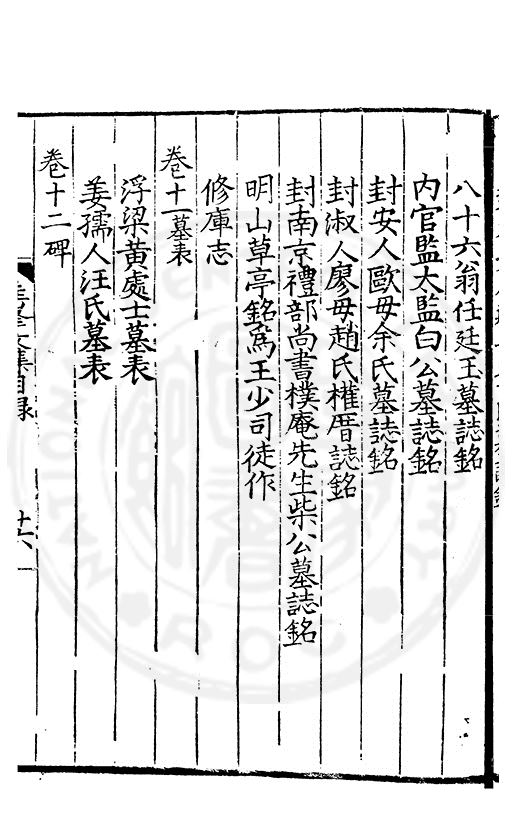 八十六翁任廷玉墓誌銘
內官監太監白公墓誌銘
封安人歐母余氏墓誌銘
封淑人廖母趙氏權厝誌銘
封南京禮部尚書樸庵先生柴公墓誌銘
明山草亭銘為王少司徒作
修庫志
卷十一墓表
浮梁黃處士墓表
姜孺人汪氏墓表
卷十二碑
文集目錄